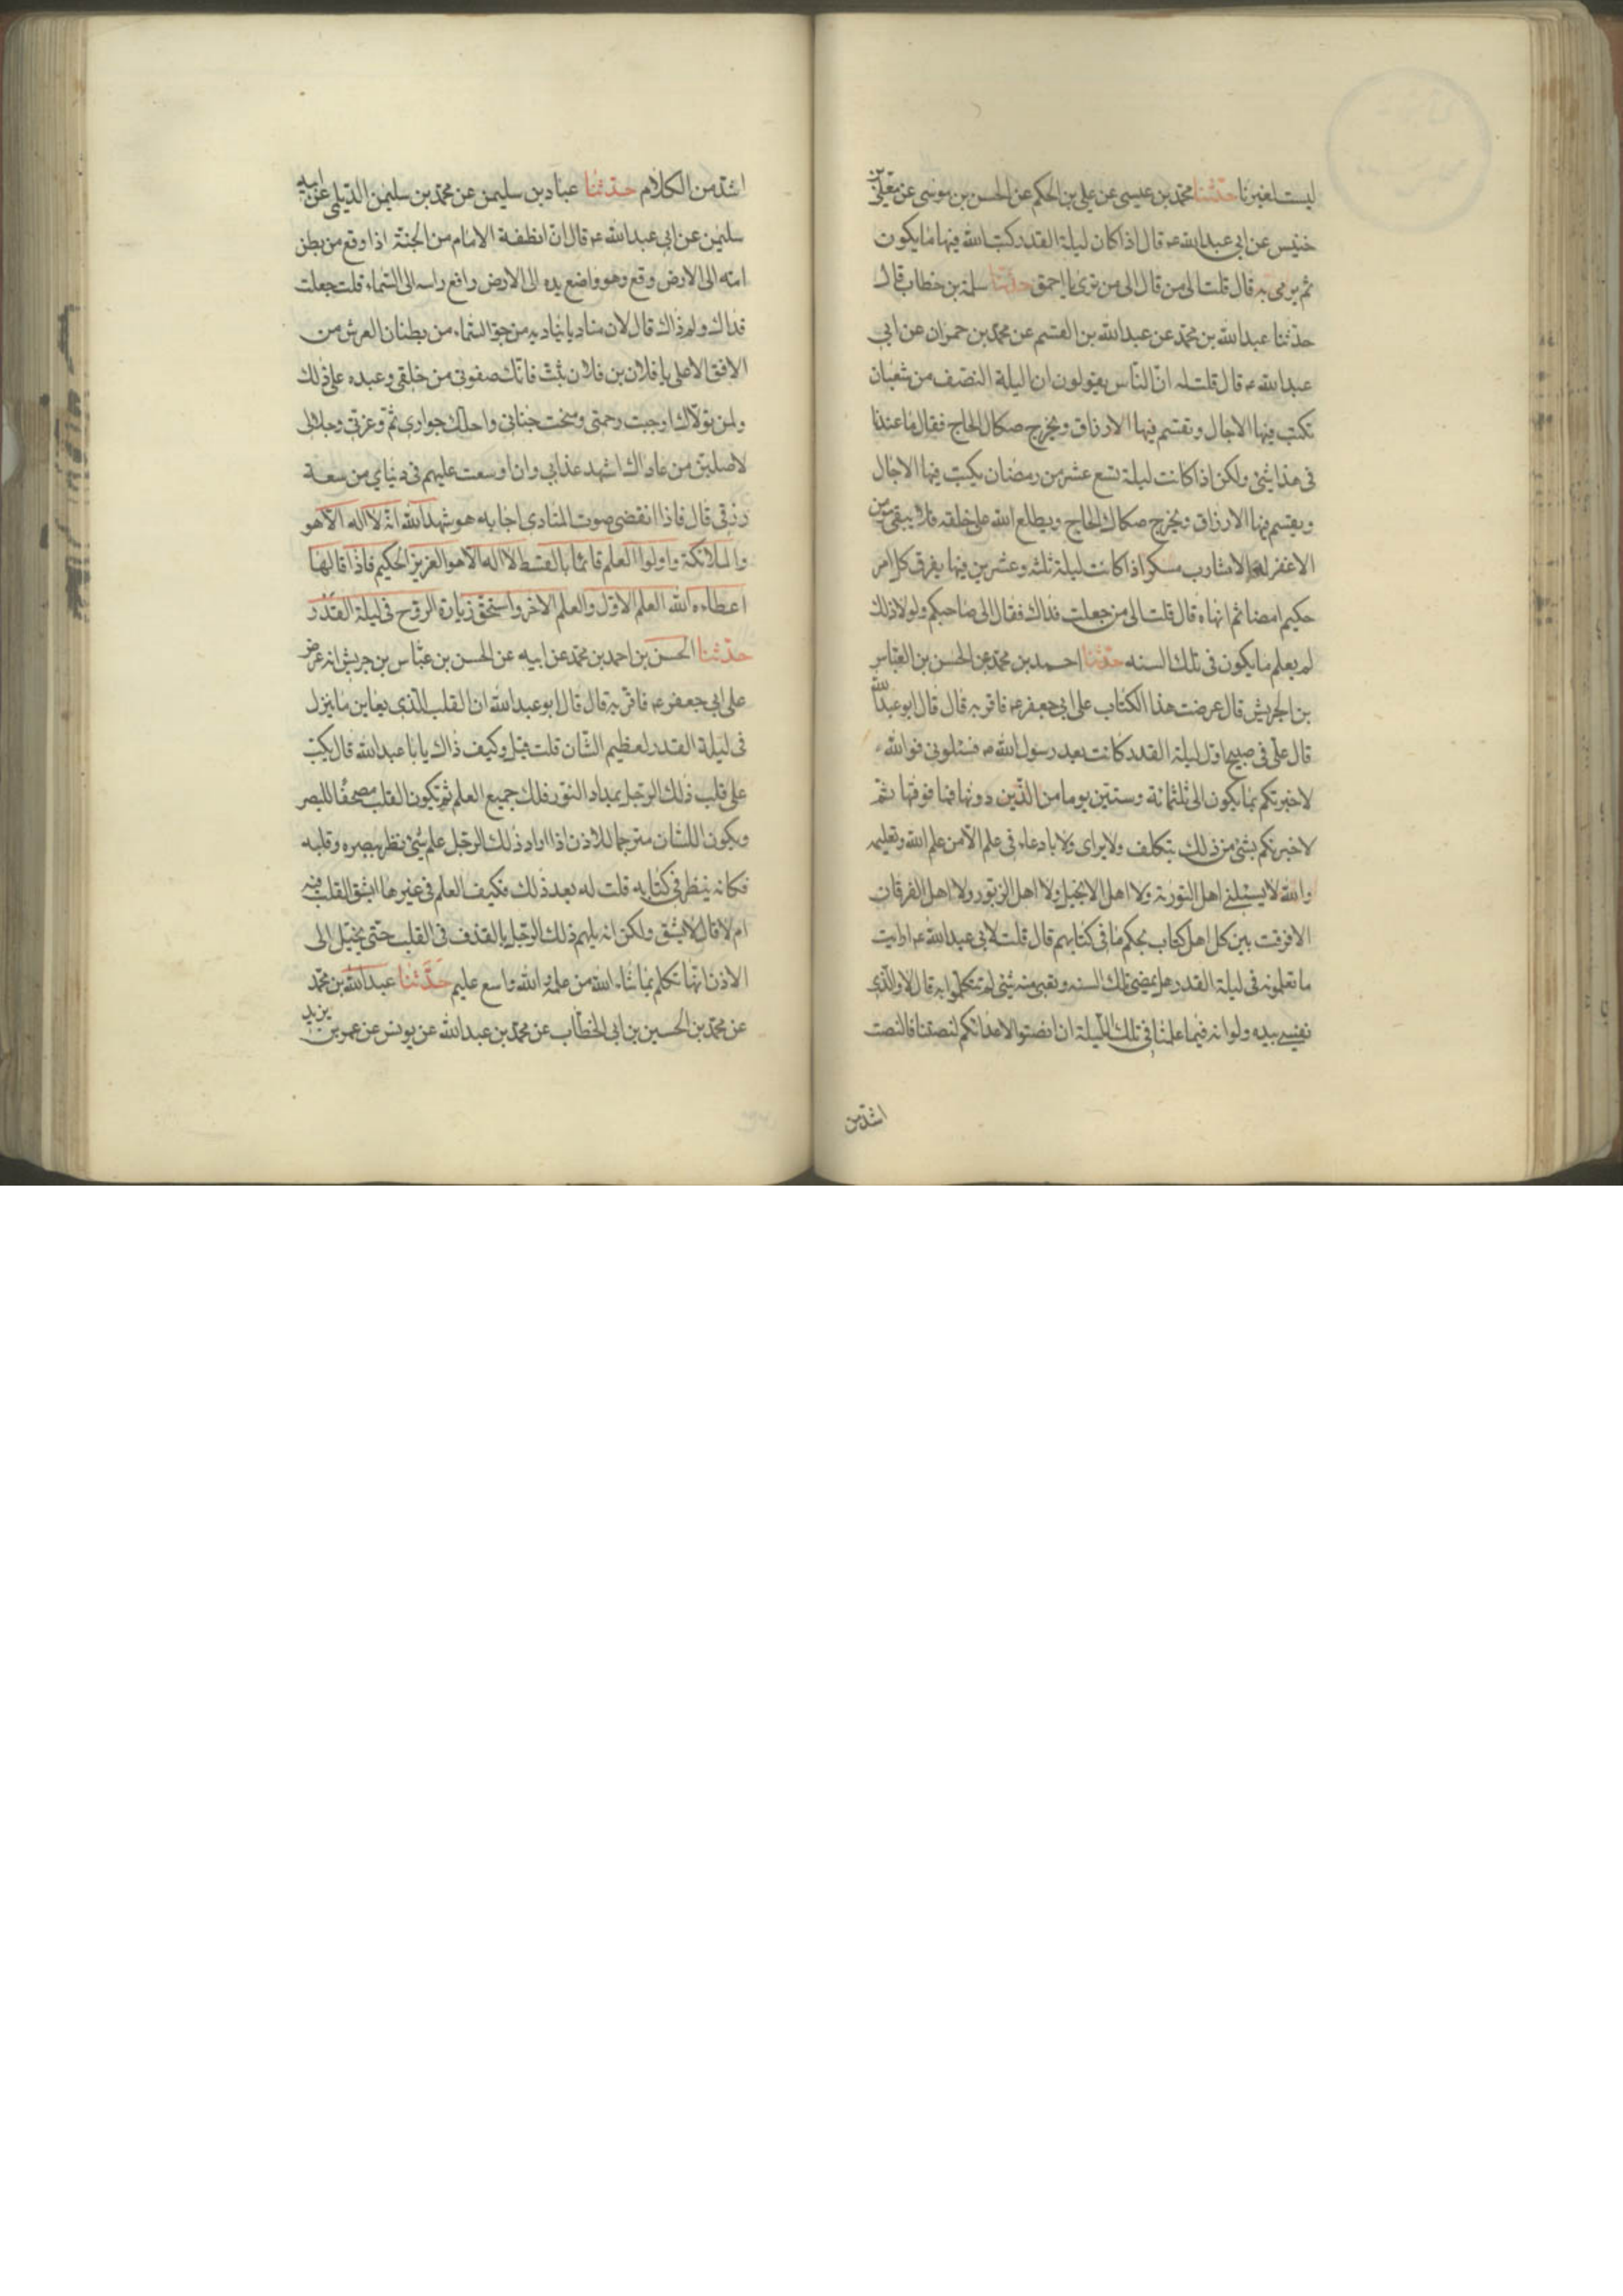 ليست لغيرنا حدثنا محمد بن عيسى عن علي بن الحكم عن الحسن بن موسى عن معلى بن
خنيس عن ابي عبدالله ع قال اذا كان ليلة القدر كتب الله فيها ما يكون
ثم يرمى به قال قلت الى من قال الى من ترى يا احمق حدثنا سلمة بن خطاب قال
حدثنا عبدالله بن محمد عن عبدالله بن القسم عن محمد بن حمران عن ابي
عبدالله ع قال قلت له ان الناس يقولون ان ليلة النصف من شعبان
تكتب فيها الاجال وتقسم فيها الارزاق وتخرج صكاك الحاج فقال ما عندنا
في هذا شئ ولكن اذا كانت ليلة تسع عشر من رمضان يكتب فيها الاجال
ويقسم فيها الارزاق ويخرج صكاك الحاج ويطلع الله على خلقه فلا يبقى مؤمن
الا غفر له الا شارب مسكر اذا كانت ليلة ثلثه وعشرين فيها يفرق كل امر
حكيم امضا ثم انهاه قال قلت الى من جعلت فداك فقال الى صاحبكم ولولا ذلك
لم يعلم ما يكون في تلك السنه حدثنا احمد بن محمد عن الحسن بن العباس
بن الجريش قال عرضت هذا الكتاب على ابي جعفر ع فاقر به قال قال ابو عبدالله
قال علي في صبيح اول ليلة القدر كانت بعد رسول الله ص فسئلوني فوالله
لاخبرنكم بما يكون الى ثلثمائة وستين يوما من الذين دونها فما فوقها ثم
لاخبرنكم بشئ من ذلك بتكلف ولا براى ولا بادعاء في علم الا من علم الله وتعليمه
والله لا يسئلني اهل التورية ولا اهل الانجيل ولا اهل الزبور ولا اهل الفرقان
الا فرقت بين كل اهل كتاب بحكم ما في كتابهم قال قلت لابي عبدالله ع ارايت
ما تعلمونه في ليلة القدر هل يمضى تلك السنه وتبقى منه شئ لم تتكلموا به قال لا والذى
نفسي بيده ولو انه فيما علمنا في تلك الليلة ان انصتوا لاعدائكم لنصتنا فالنصت
اشد من
اشد من الكلام حدثنا عباد بن سليمن عن محمد بن سليمن الديلي عن ابيه
سليمن عن ابي عبدالله ع قال ان نطفة الامام من الجنة اذا وقع من بطن
امه الى الارض وقع وهو واضع يده الى الارض رافع راسه الى السماء قلت جعلت
فداك ولم ذاك قال لان مناديا يناديه من جو السماء من بطنان العرش من
الافق الاعلى يا فلان بن فلان ثبت فانك صفوتي من خلقي وعبده على ذلك
ولمن تولاك اوجبت رحمتي ومنحت جناني واحلك جواري ثم وعزتي وجلالي
لاصلين من عاداك اشد عذابي وان اوسعت عليهم في دنياي من سعة
رزقي قال فاذا انقضى صوت المنادى اجابه هو شهد الله انه لا اله الا هو
والملائكة واولوا العلم قائما بالقسط لا اله الا هو العزيز الحكيم فاذا قالها
اعطاءه الله العلم الاول والعلم الاخر واستحق زيارة الروح في ليلة القدر
حدثنا الحسن بن احمد بن محمد عن ابيه عن الحسن بن عباس بن جريش انه عرض
على ابي جعفر ع فاقر به قال قال ابو عبدالله ان القلب الذى يعاين ما ينزل
في ليلة القدر لعظيم الشان قلت وكيف ذاك يا با عبدالله قال يكتب
على قلب ذلك الرجل بمداد النور فلك جميع العلم ثم تكون القلب مصحفا للبصر
ويكون اللسان مترجما للاذن اذا اراد ذلك الرجل علم شئ نظر ببصره وقلبه
فكانه ينظر في كتابه قلت له بعد ذلك فكيف العلم في غيرها ايشق القلب فيه
ام لا قال لا يشق ولكن انه يلهم ذلك الرجل بالقذف في القلب حتى يخيل الى
الاذن انها تكلم بما شاء الله من علمه والله واسع عليم حدثنا عبدالله بن محمد
عن محمد بن الحسين بن ابي الخطاب عن محمد بن عبدالله عن يونس عن عمر بن يزيد